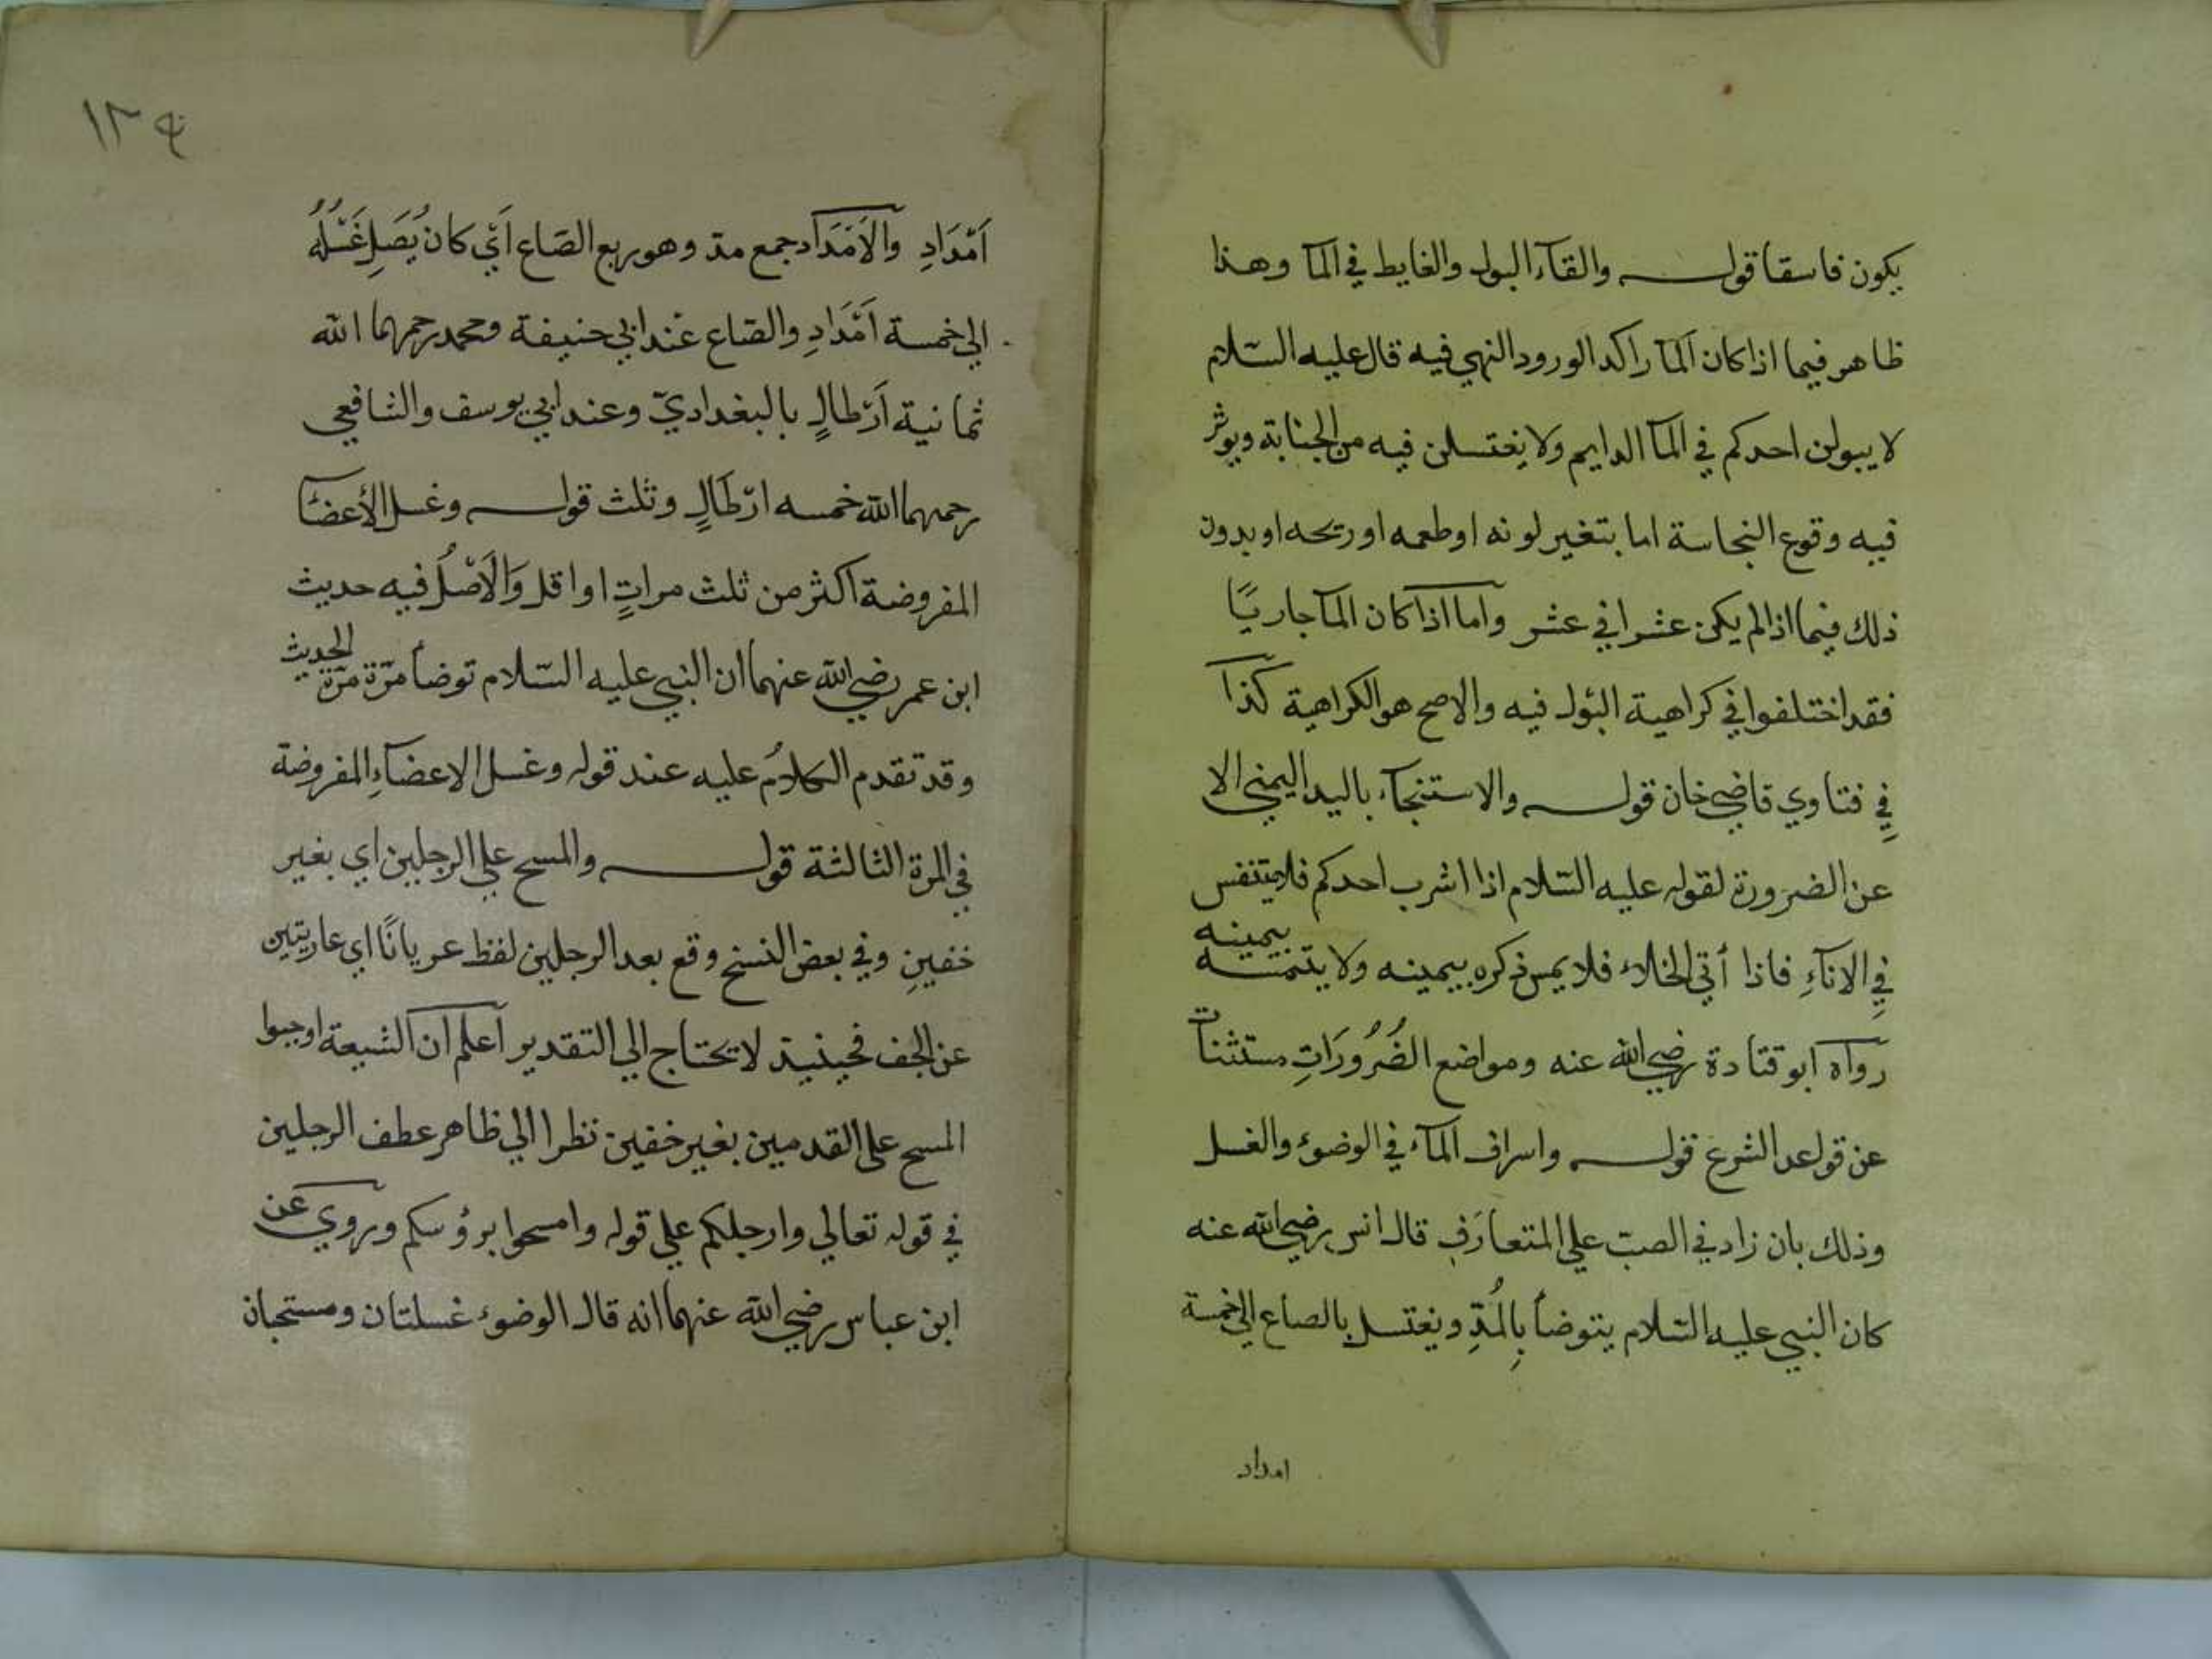 يكون فاسقا قوله والقآء البول والغايط في المآ وهذا
ظاهر فيما اذا كان المآ راكد الورود النهي فيه قال عليه السّلام
لا يبولن احدكم في المآ الدايم ولا يغتسلن فيه من الجنابة ويوثر
فيه وقوع النجاسة اما بتغير لونه اوطعمه اوريحه اوبدون
ذلك فيما اذا لم يكن عشرا في عشر واما اذا كان المآ جاريًا
فقد اختلفوا في كراهية البَول فيه والاصح هو الكراهية كذا
في فتاوي قاضي خان قوله والاستنجآء باليد اليمني الا
عن الضرورة لقوله عليه السّلام اذا اشرب احدكم فلا يتنفس
في الانآءِ فاذا أتي الخلاء فلا يمس ذكره بيمينه ولا يتمسه بيمينه
رواه ابو قتادة رضي الله عنه ومواضع الضُرُورَاتِ مستثنات
عن قواعد الشرع قوله واسراف المآء في الوضوء والغسل
وذلك بان زاد في الصبّ علي المتعارَفِ قال انس رضي الله عنه
كان النبي عليه السّلام يتوضأ بِالمُدِّ ويغتسل بالصاع الي خمسة
امداد
١٣٤
اَمْدَادِ والاَمْدَاد جمع مدّ وهو ربع الصّاع اَيْ كان يُصَلِ غَسْلُهُ
الي خمسة اَمْدَادِ والصّاع عند ابي حنيفة ومحمد رحمهما الله
ثمانية اَرْطالٍ بالبغداديّ وعند ابي يوسف والشافعي
رحمهما الله خمسه ارْطَالٍ وثلث قوله وغسل الأعضآ
المفروضة اكثر من ثلث مراتٍ او اقل وَالاَصْلُ فيه حديث
ابن عمر رضي الله عنهما ان النبي عليه السّلام توضأ مرّة مرّة الحديث
وقد تقدم الكلامُ عليه عند قوله وغسل الاعضآءِ المفروضة
في المرة الثالثة قوله والمسح علي الرجلين اي بغير
خفينِ وفي بعض النسخ وقع بعد الرجلين لفظ عريانًا اي عاريتين
عن الخف فحينيذ لا يحتاج الي التقدير اعلم ان الشيعة اوجبوا
المسح علي القدمين بغير خفين نظرا الي ظاهر عطف الرجلين
في قوله تعالي وارجلكم علي قوله وامسحوا برؤسكم وروي عن
ابن عباس رضي الله عنهما انه قال الوضوء غسلتان ومستحبان